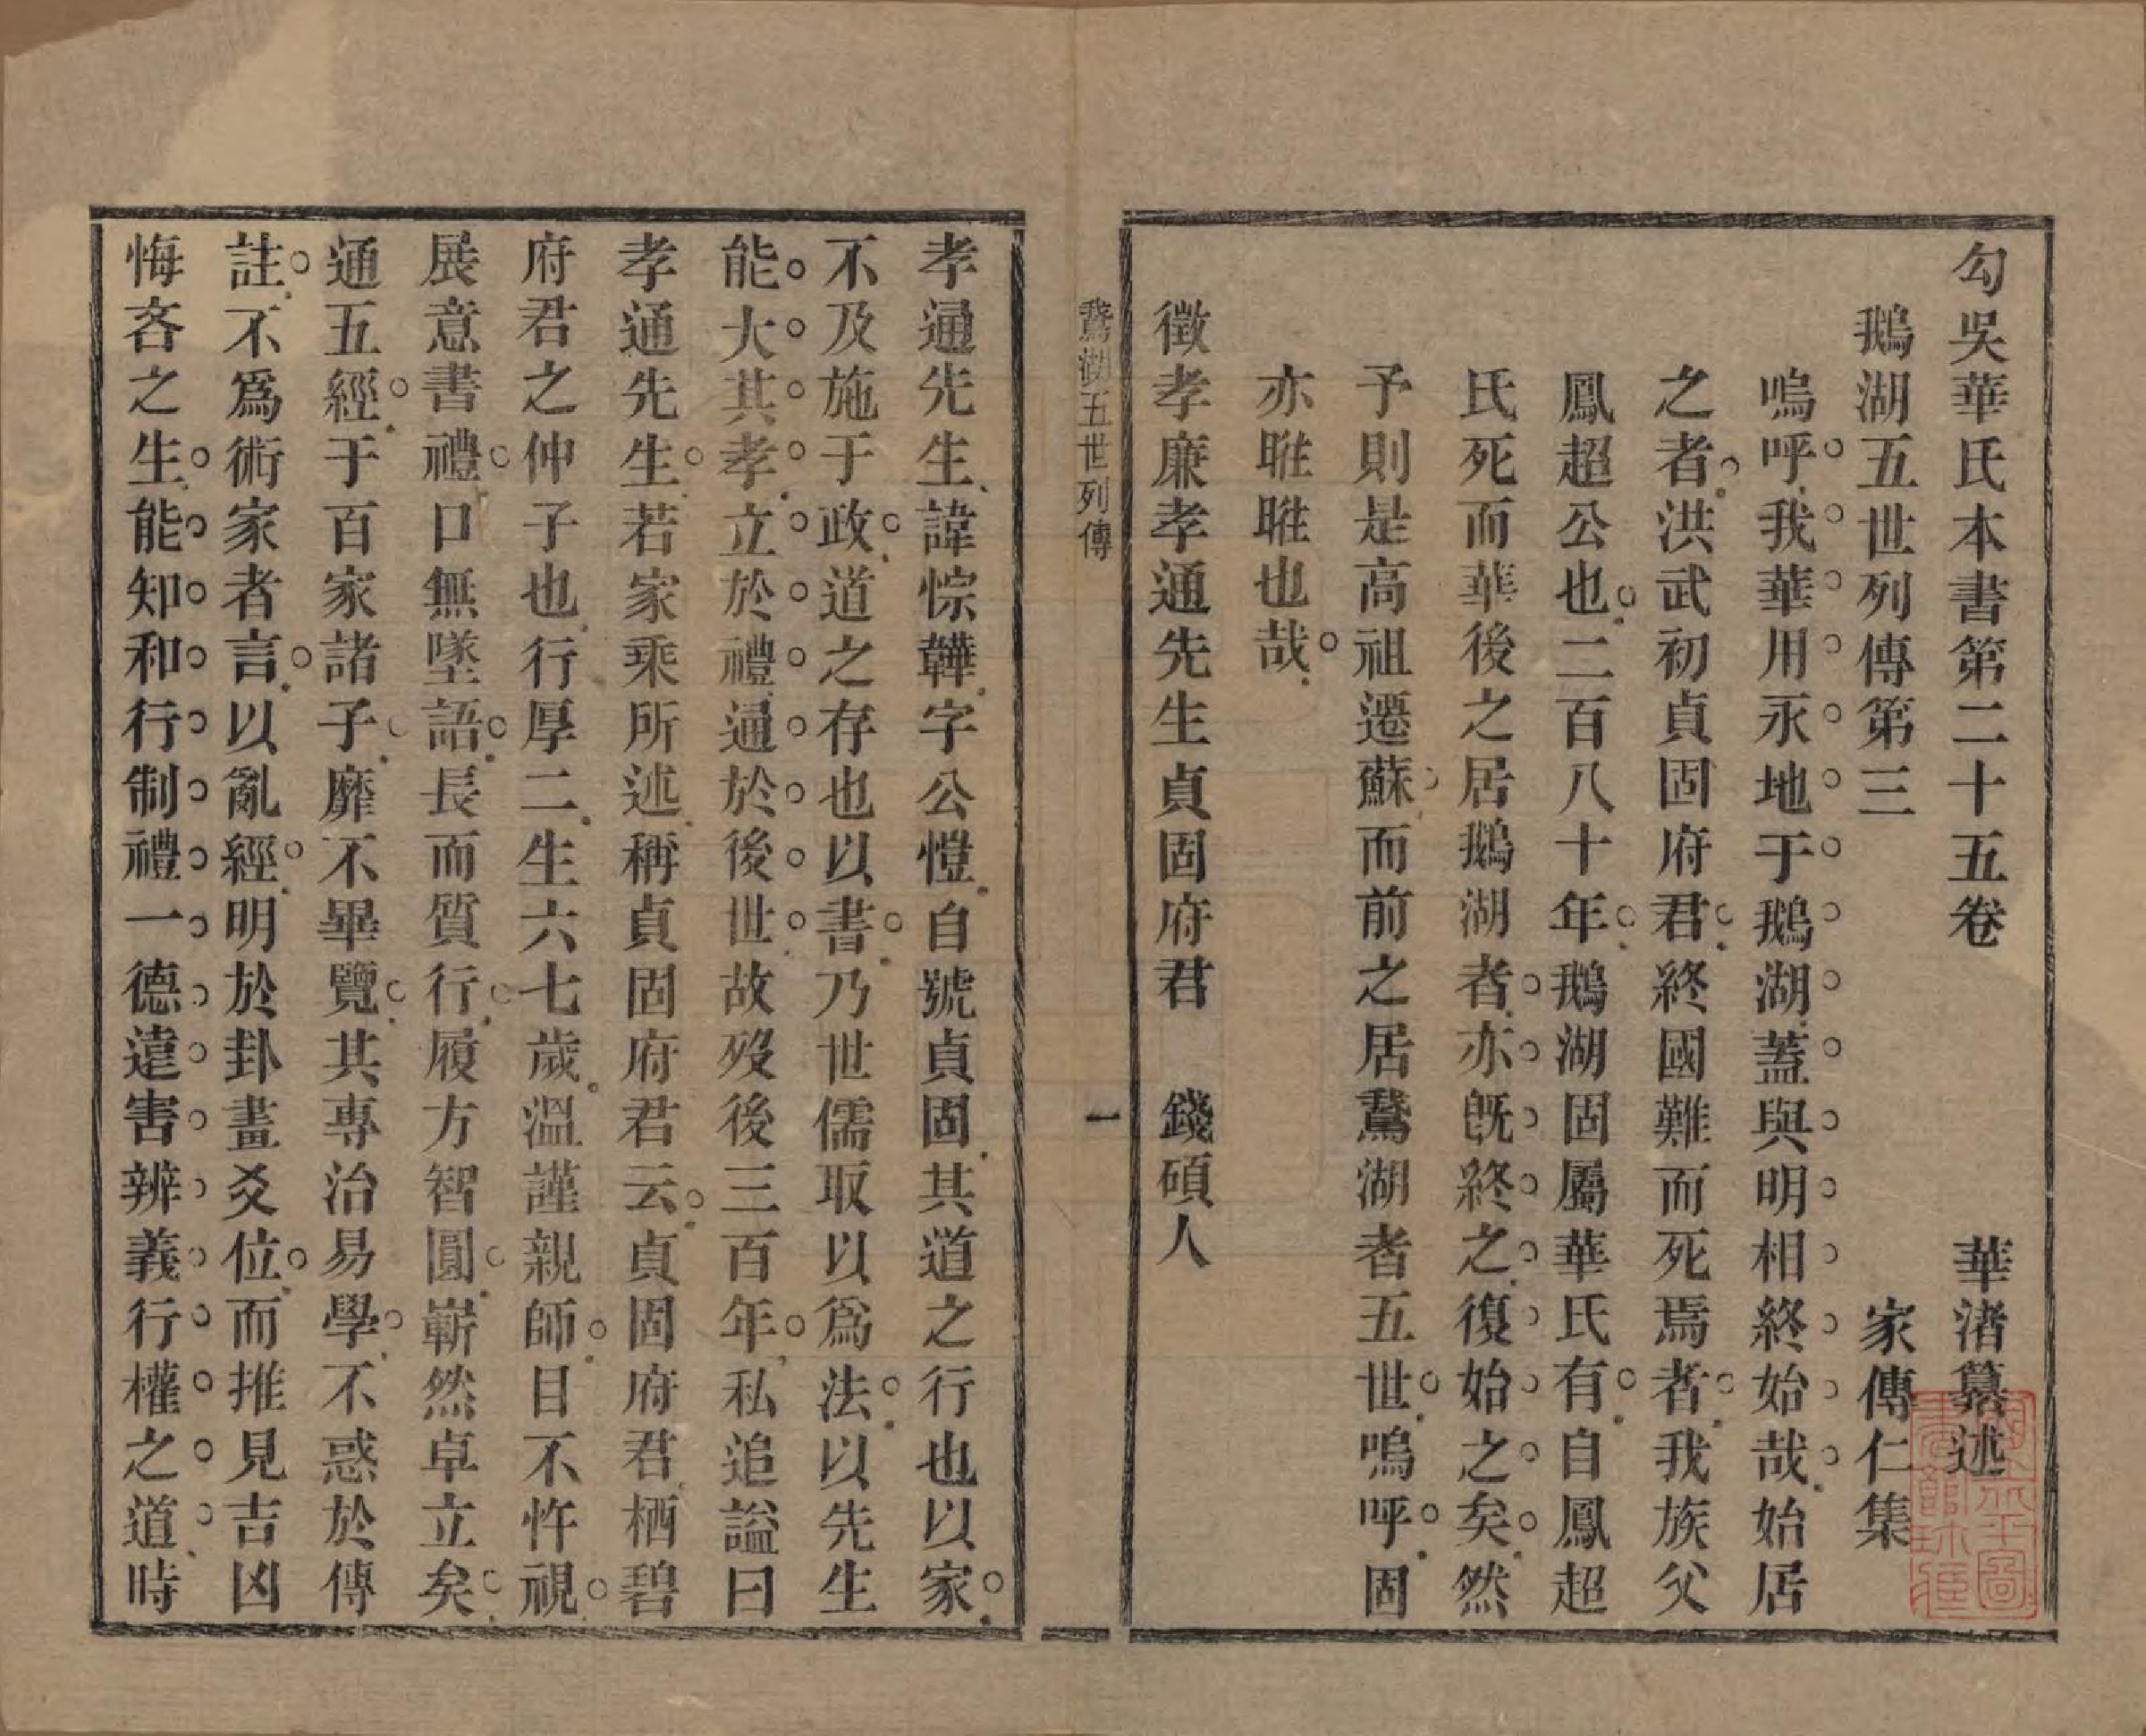 勾吳華氏本書第二十五卷 華渚纂述
鵝湖五世列傳第三 家傳仁集
嗚呼我華用永地于鵝湖蓋與明相終始哉始居
之者洪武初貞固府君終國難而死焉者我族父
鳳超公也二百八十年鵝湖固屬華氏有自鳳超
氏死而華後之居鵝湖者亦旣終之復始之矣然
予則是高祖遷蘇而前之居鵞湖者五世嗚呼固
亦睢睢也哉
徵孝廉孝通先生貞固府君 錢碩人
鵞湖五世列傳 一
孝通先生諱悰韡字公愷自號貞固其道之行也以家
不及施于政道之存也以書乃世儒取以爲法以先生
能大其孝立於禮通於後世故歿後三百年私追謚曰
孝通先生若家乘所述稱貞固府君云貞固府君栖碧
府君之仲子也行厚二生六七歲溫謹親師目不忤視
展意書禮口無墜語長而質行履方智圓嶄然卓立矣
通五經于百家諸子靡不畢覽其專治易學不惑於傳
註不爲術家者言以亂經明於卦畫爻位而推見吉凶
悔吝之生能知和行制禮一德遠害辨義行權之道時